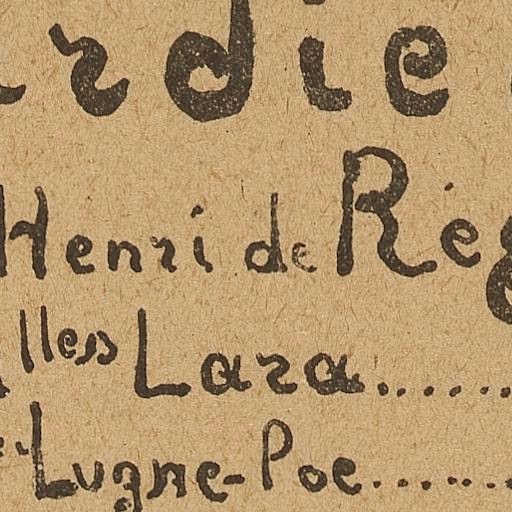 rdie
Henri de Rég
lles Lara........
Lugne-Poe........